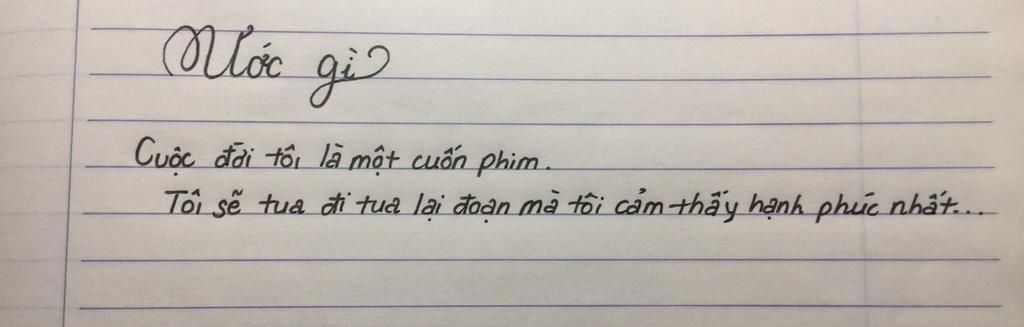 Ước gì
Cuộc đời tôi là một cuốn phim.
Tôi sẽ tua đi tua lại đoạn mà tôi cảm thấy hạnh phúc nhất...